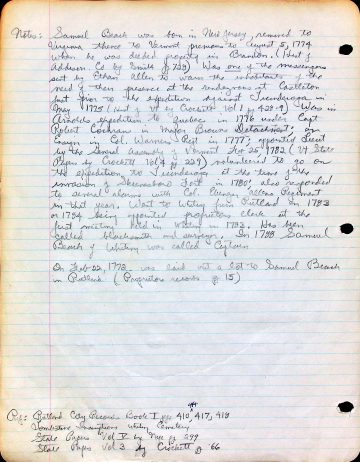 Notes: Samuel Beach was born in New Jersey, removed to
Virginia thence to Vermont previous to August 5, 1774
when he was deeded property in Brandon. (Hist of
Addison Co by Smith p 729) Was one of the messengers
sent by Ethan Allen to warn the inhabitants of the
need of their presence at the rendezvous at Castleton
just prior to the expedition against Ticonderoga in
May 1775 (Hist of Vt by Crockett Vol 1 p 429-9) Was in
Arnolds expedition to Quebec in 1776 under Capt
Robert Cochran in Major Browns Detachment, an
Ensign in Col. Warners Regt in 1777; appointed Lieut
by the General Assembly of Vermont Feb 25 1782 (Vt State
Papers by Crockett Vol 4 p 229) volunteered to go on
the expedition to Ticonderoga at the time of the
invasion of Skenesboro Fort in 1780; also responded
to several alarms with Col. Ebenezer Allens Regiment
in that year. Went to Whiting from Rutland in 1783
or 1784 being appointed proprietors clerk at the
first meeting held in Whiting in 1783. Has been
called blacksmith and surveyor. In 1788 Samuel
Beach of Whiting was called Captain
On Feb 22, 1773 was laid out a lot to Samuel Beach
in Rutland (Proprietors records p 15)
Ref: Rutland City Records Book I pp 410, 417, 418
Tombstone Inscriptions Whiting Cemetery
State Papers Vol V by p 299
State Papers Vol 3 by Crockett p 66